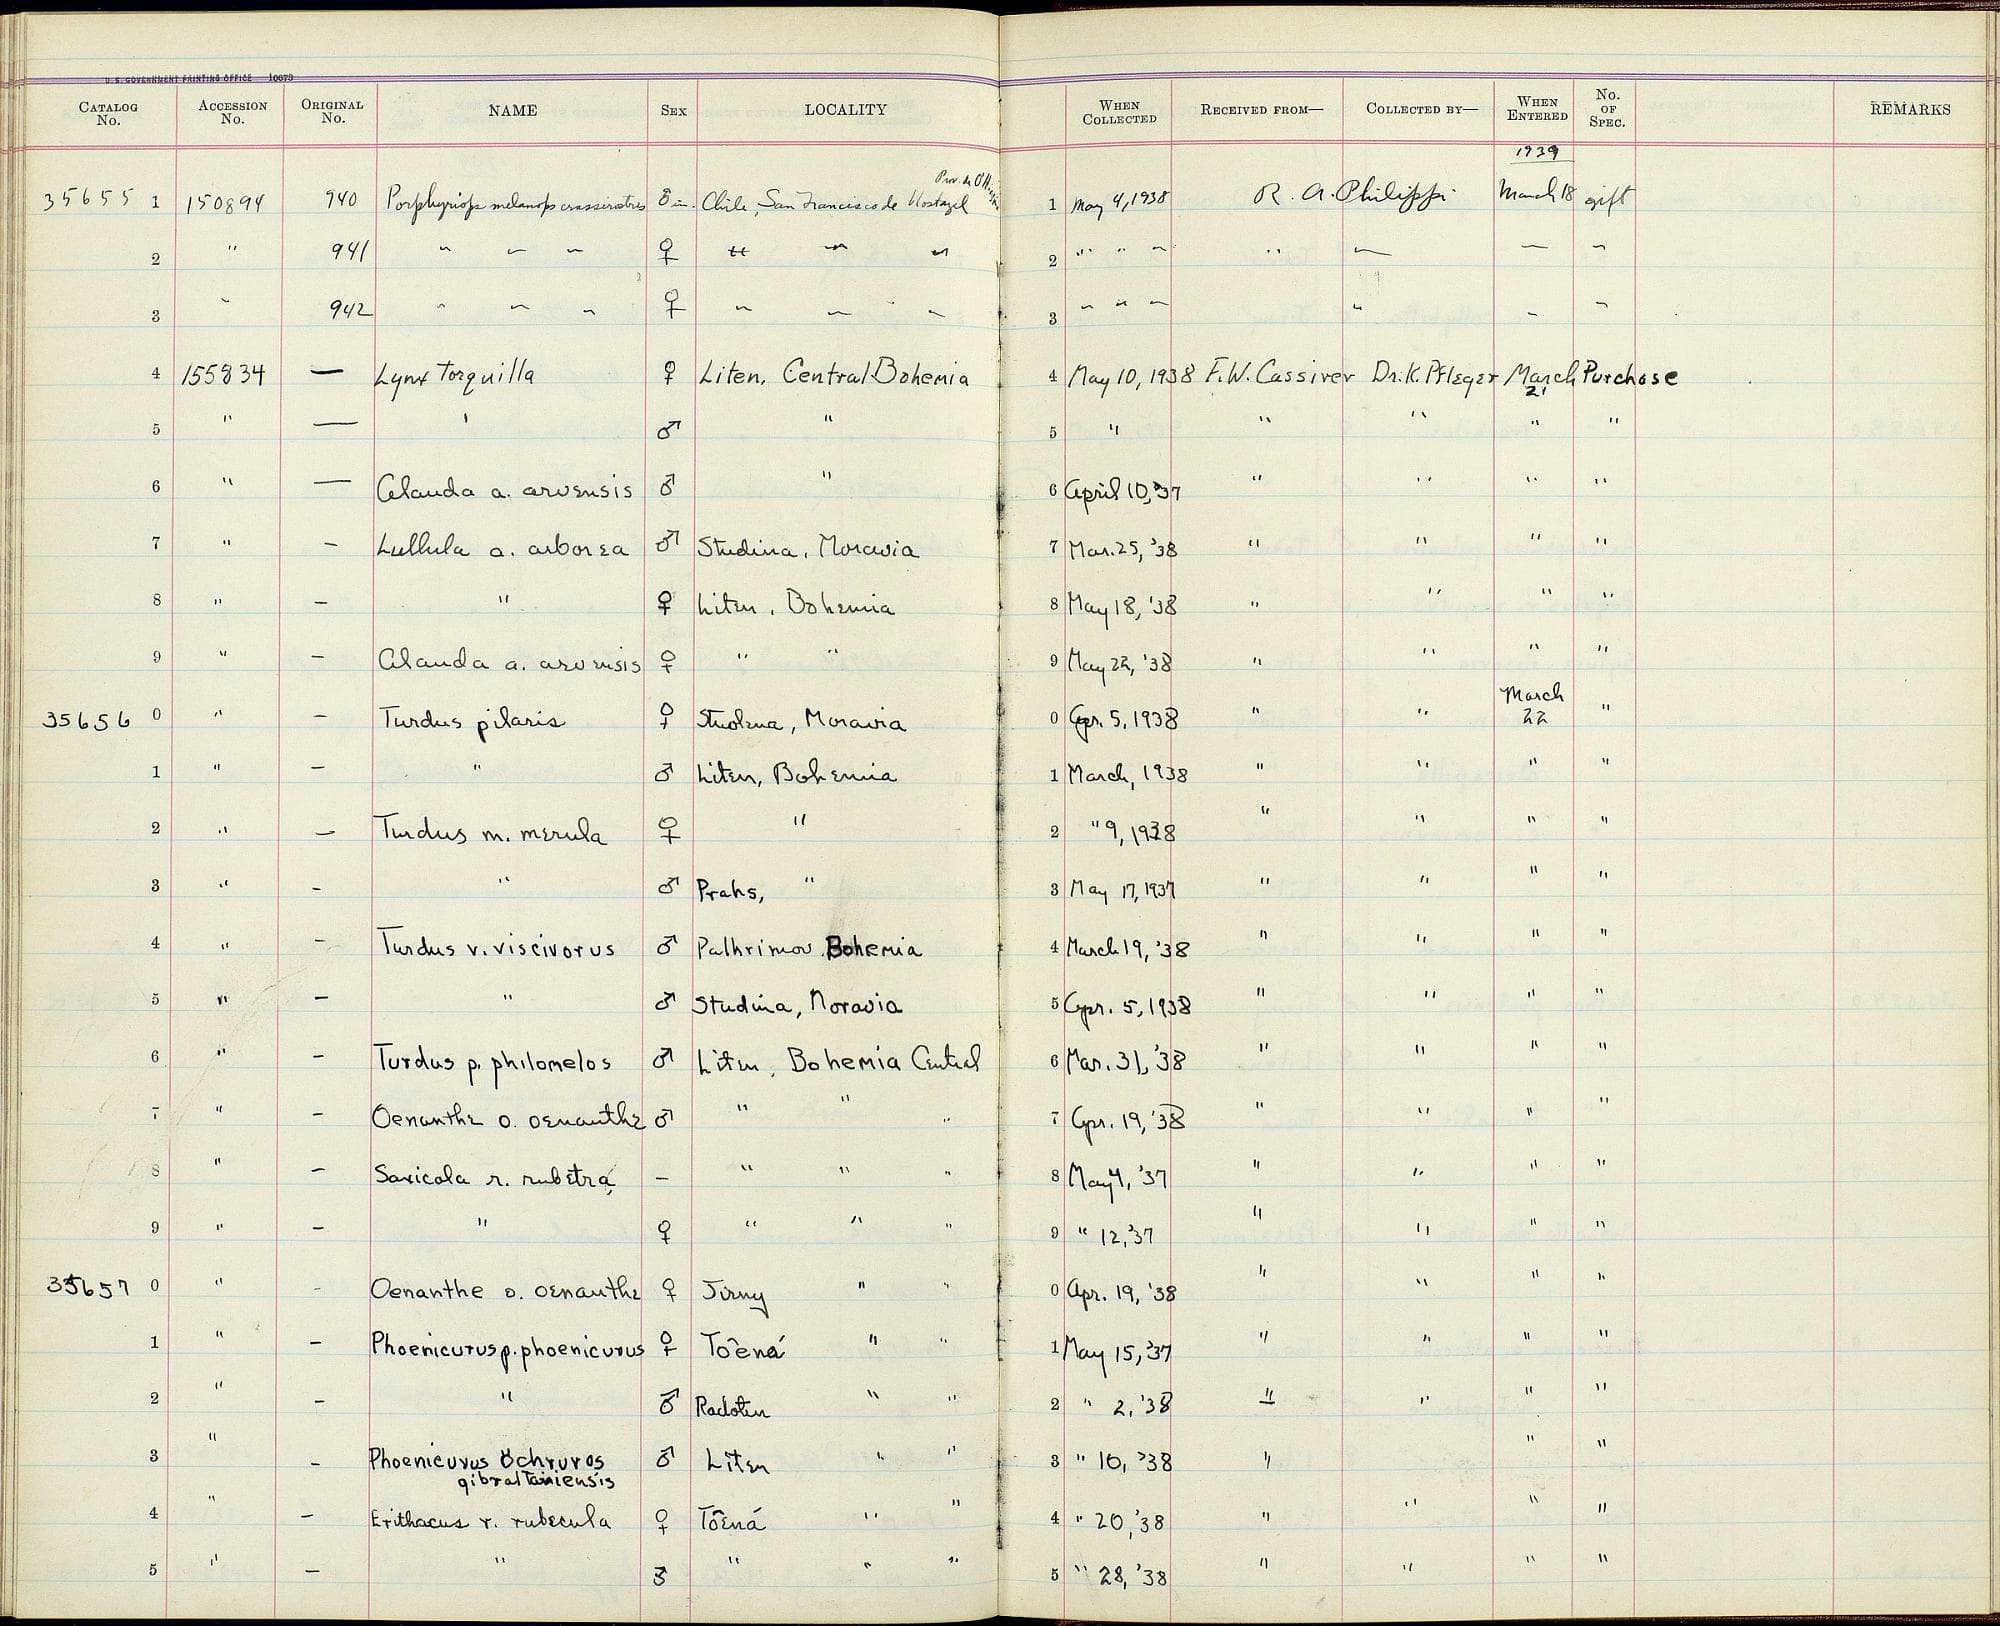 U.S. GOVERNMENT PRINTING OFFICE 10073
CATALOG No. ACCESSION No. ORIGINAL No. NAME SEX LOCALITY WHEN COLLECTED RECEIVED FROM— COLLECTED BY— WHEN ENTERED No. OF SPEC. REMARKS
1939
35655 1 150894 940 Porphyriops melanops crassirostris ♂ im. Chile, San Francisco de Mostazal Prov. de O'Higgins 1 May 4, 1938 R. A. Philippi March 18 gift
2 " 941 " " " ♀ " " " 2 " " " " " " "
3 " 942 " " " ♀ " " " 3 " " " " " "
4 155834 — Lynx torquilla ♀ Liten, Central Bohemia 4 May 10, 1938 F.W. Cassirer Dr. K. Pfleger March 21 Purchase
5 " — " ♂ " 5 " " " " "
6 " — Alauda a. arvensis ♂ " 6 April 10, '37 " " " "
7 " — Lullula a. arborea ♂ Studina, Moravia 7 Mar. 25, '38 " " " "
8 " — " ♀ Liten, Bohemia 8 May 18, '38 " " " "
9 " — Alauda a. arvensis ♀ " " 9 May 22, '38 " " " "
35656 0 " — Turdus pilaris ♀ Studena, Moravia 0 Apr. 5, 1938 " " March 22 "
1 " — " ♂ Liten, Bohemia 1 March, 1938 " " " "
2 " — Turdus m. merula ♀ " 2 " 9, 1938 " " " "
3 " — " ♂ Prahs, " 3 May 17, 1937 " " " "
4 " — Turdus v. viscivorus ♂ Palhrimov Bohemia 4 March 19, '38 " " " "
5 " — " ♂ Studina, Moravia 5 Apr. 5, 1938 " " " "
6 " — Turdus p. philomelos ♂ Liten, Bohemia Central 6 Mar. 31, '38 " " " "
7 " — Oenanthe o. oenanthe ♂ " " " 7 Apr. 19, '38 " " " "
8 " — Saxicola r. rubetra — " " " 8 May 4, '37 " " " "
9 " — " ♀ " " " 9 " 12, '37 " " " "
35657 0 " — Oenanthe o. oenanthe ♀ Jirny " " 0 Apr. 19, '38 " " " "
1 " — Phoenicurus p. phoenicurus ♀ Toêná " " 1 May 15, '37 " " " "
2 " — " ♂ Radotin " " 2 " 2, '38 " " " "
3 " — Phoenicurus ochruros gibraltariensis ♂ Liten " " 3 " 10, '38 " " "
4 " — Erithacus r. rubecula ♀ Toêná " " 4 " 20, '38 " " " "
5 " — " ♂ " " " 5 " 28, '38 " " " "